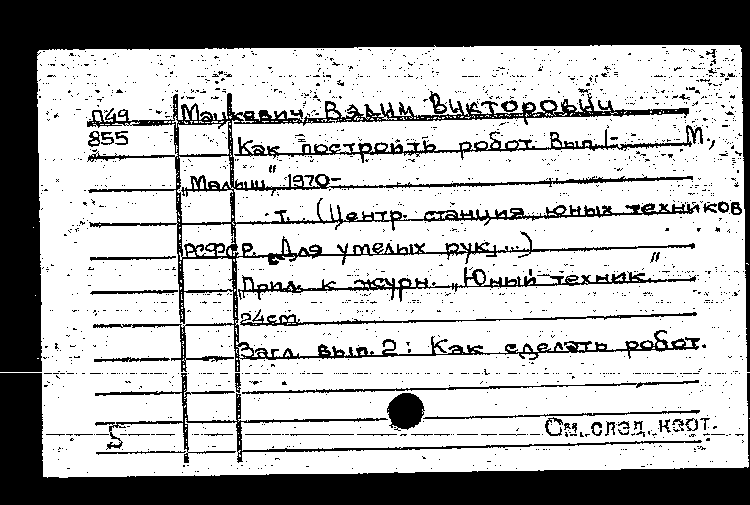 П49 Мацкевич, Вадим Викторович
855 Как построить робот. Вып. 1- М.,
„Малыш", 1970-
т. (Центр. станция юных техников
РСФСР. Для умелых рук...)
„Прил. к журн. „Юный техник"
24 см.
Загл. вып. 2: Как сделать робот.
5 См. след. карт.